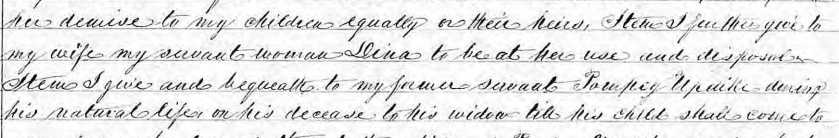 her demise to my children equally or their heirs, Item I further give to
my wife my servant woman Dina to be at her use and disposal
Item I give and bequeath to my former servant Pompey Updike during
his natural life, on his decease to his widow till his child shall come to